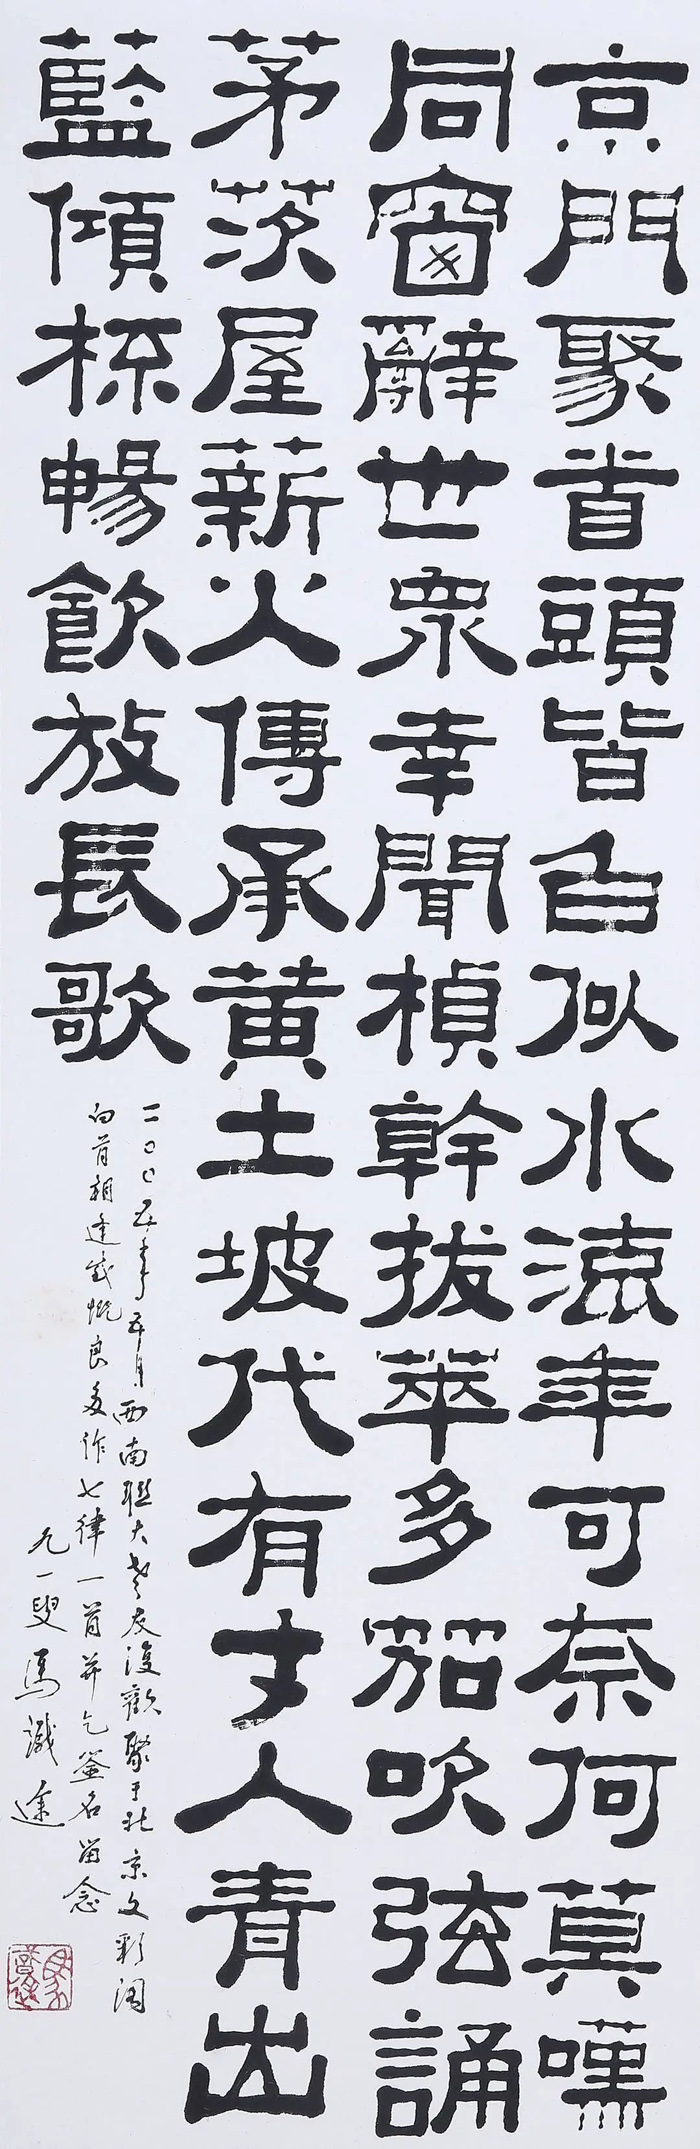 京門聚首頭皆白似水流年可奈何莫嘆
同窗辭世眾幸聞楨幹拔萃多笳吹弦誦
茅茨屋薪火傳承黃土坡代有才人青出
藍傾杯暢飲放長歌
二〇〇五年五月西南聯大老友復歡聚于北京文彩阁
白首相逢感慨良多作七律一首并乞签名留念
九一叟馬識途